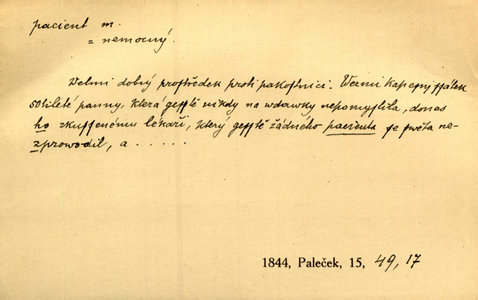 pacient m.
= nemocný.
Velmi dobrý prostředek proti pakostnici. Wezmi
50tileté panny, která gesstě nikdy na wdawky nepomyslila, dones
ho zkussenému lékaři, který gesstě žádného pacienta se swěta ne-
zprowodil, a . . . . . .
1844, Paleček, 15, 49, 17